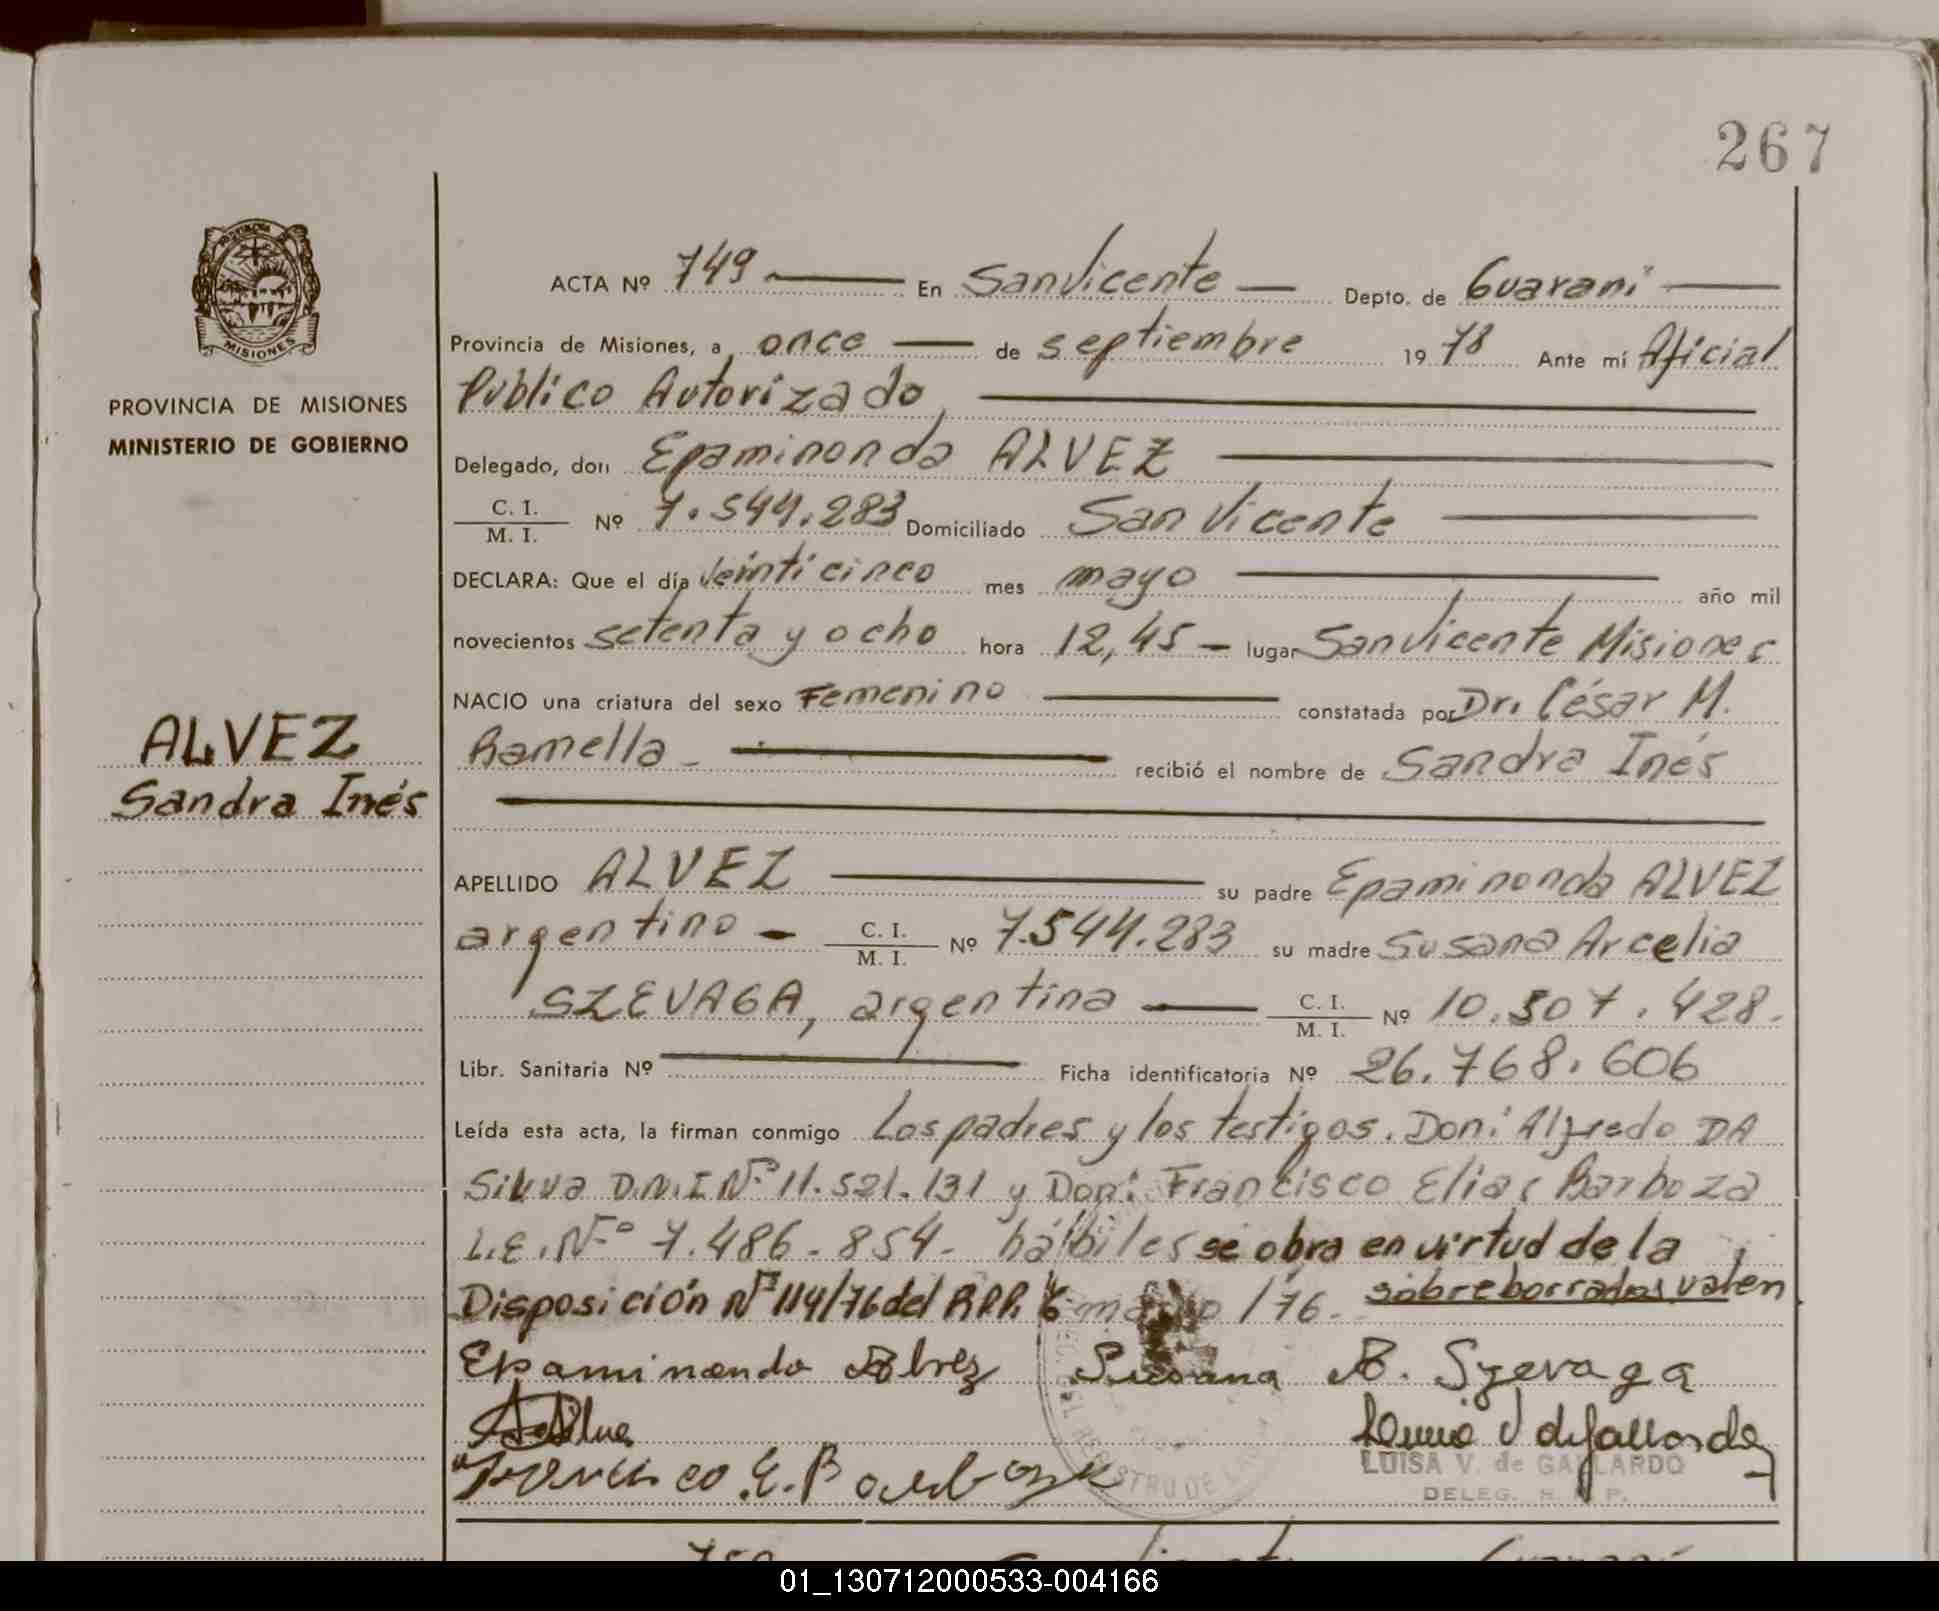 267
ACTA Nº 749 En San Vicente Depto. de Guaraní
Provincia de Misiones, a once de septiembre 1978 Ante mí Oficial
Público Autorizado,
Delegado, don Epaminonda ALVEZ
C. I. / M. I. Nº 7.544.283 Domiciliado San Vicente
DECLARA: Que el día veinticinco mes mayo año mil
novecientos setenta y ocho hora 12,45 - lugar San Vicente Misiones
NACIO una criatura del sexo Femenino constatada por Dr. César M.
Ramella - recibió el nombre de Sandra Inés
APELLIDO ALVEZ su padre Epaminonda ALVEZ
argentino - C. I. / M. I. Nº 7.544.283 su madre Susana Arcelia
SZEVAGA, argentina C. I. / M. I. Nº 10.507.428.
Libr. Sanitaria Nº Ficha identificatoria Nº 26.768.606
Leída esta acta, la firman conmigo Los padres y los testigos. Don: Alfredo DA
Silva D.N.I Nº 11.521.131 y Don: Francisco Elias Barboza
L.E. Nº 7.486.854- hábiles se obra en virtud de la
Disposición Nº 114/76 del R.P.P. 6 /76. sobreborrados valen
Epaminonda Alvez Susana A. Szevaga
Francisco E. Barboza
LUISA V. de GALLARDO
DELEG. R. P.
PROVINCIA DE MISIONES
MINISTERIO DE GOBIERNO
MISIONES
ALVEZ
Sandra Inés
01_130712000533-004166